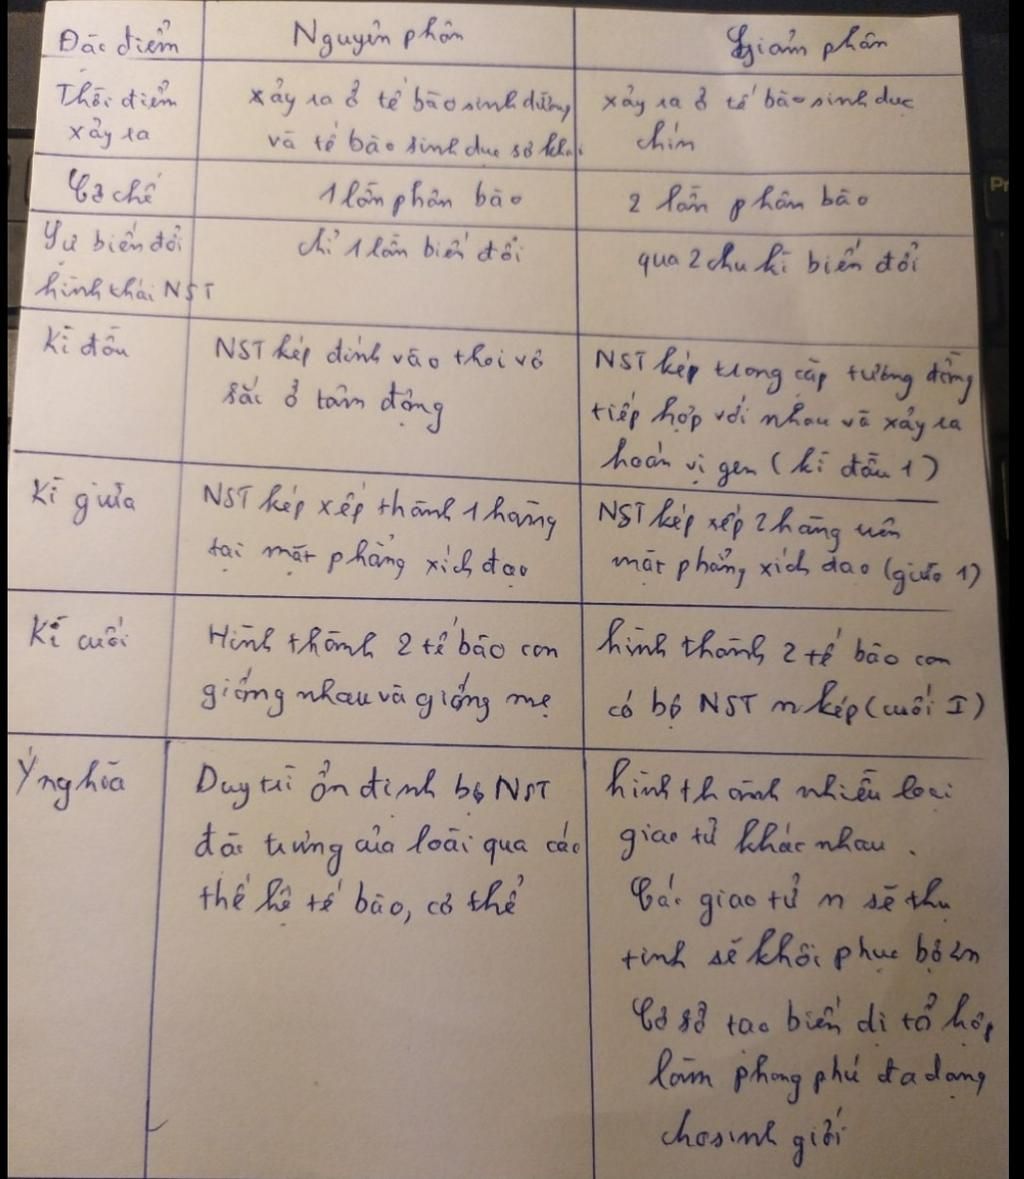 Đặc điểm
Nguyên phân
Giảm phân
Thời điểm
xảy ra
xảy ra ở tế bào sinh dưỡng
và tế bào sinh dục sơ khai
xảy ra ở tế bào sinh dục
chín
Cơ chế
1 lần phân bào
2 lần phân bào
Sự biến đổi
hình thái NST
chỉ 1 lần biến đổi
qua 2 chu kì biến đổi
Kì đầu
NST kép đính vào thoi vô
sắc ở tâm động
NST kép trong cặp tương đồng
tiếp hợp với nhau và xảy ra
hoán vị gen (kì đầu 1)
Kì giữa
NST kép xếp thành 1 hàng
tại mặt phẳng xích đạo
NST kép xếp 2 hàng trên
mặt phẳng xích đạo (giữa 1)
Kì cuối
Hình thành 2 tế bào con
giống nhau và giống mẹ
hình thành 2 tế bào con
có bộ NST n kép (cuối I)
Ý nghĩa
Duy trì ổn định bộ NST
đặc trưng của loài qua các
thế hệ tế bào, cơ thể
hình thành nhiều loại
giao tử khác nhau.
Các giao tử n sẽ thụ
tinh sẽ khôi phục bộ 2n
Cơ sở tạo biến dị tổ hợp
làm phong phú đa dạng
cho sinh giới